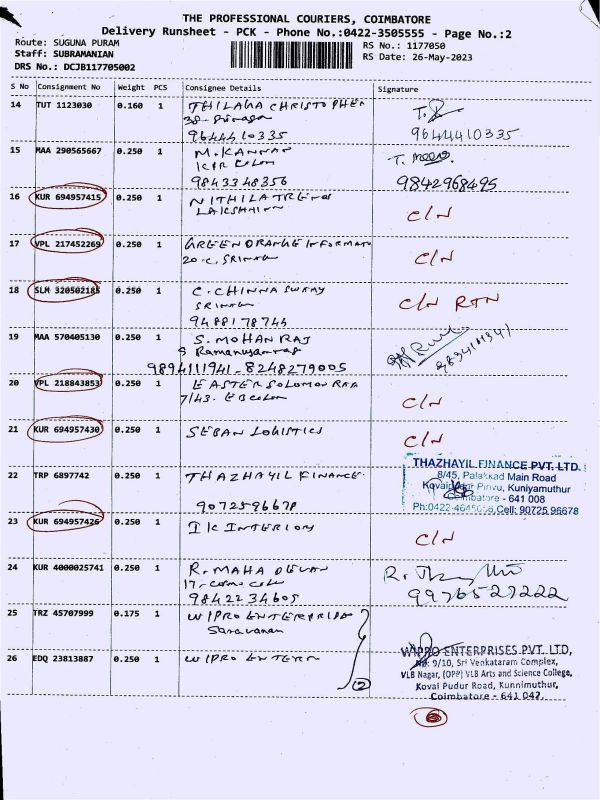 THE PROFESSIONAL COURIERS, COIMBATORE
Delivery Runsheet - PCK - Phone No.:0422-3505555 - Page No.:2
Route: SUGUNA PURAM
Staff: SUBRAMANIAN
DRS No.: DCJB117705002
RS No.: 1177050
RS Date: 26-May-2023
S No Consignment No Weight PCS Consignee Details Signature
14 TUT 1123030 0.160 1 THILAGA CHRISTOPHER
9644410335 9644410335
15 MAA 290565667 0.250 1 M.KANNAN
9843348356 9842968495
16 KUR 694957415 0.250 1 NITHILA TRENDS
C/N
17 VPL 217452269 0.250 1 GREEN ORANGE INFORMATN
C/N
18 SLM 320502185 0.250 1 C. CHINNASWAMY
C/N RTN
9488178745
19 MAA 570405130 0.250 1 S. MOHAN RAJ
9894111941 - 8248279005
20 VPL 218843853 0.250 1 EASTER SOLOMON RAJ
7/43. EB Colon C/N
21 KUR 694957430 0.250 1 SEBAN LOGISTICS
C/N
22 TRP 6897742 0.250 1 THAZHAYIL FINANCE
9072596678
THAZHAYIL FINANCE PVT. LTD.
8/45, Palakkad Main Road
Pirivu, Kuniyamuthur
Coimbatore - 641 008
Cell: 90725 96678
23 KUR 694957426 0.250 1 IK INTERIORS
C/N
24 KUR 4000025741 0.250 1 R. MAHADEVAN
9842234605 9976527222
25 TRZ 45707999 0.175 1 WIPRO ENTERPRISE
Saravanan
26 EDQ 23813887 0.250 1 WIPRO ENTERP
2
WIPRO ENTERPRISES PVT. LTD,
No: 9/10, Sri Venkataram Complex,
VLB Nagar, (OPP) VLB Arts and Science College,
Kovai Pudur Road, Kunnimuthur,
Coimbatore - 641 042.